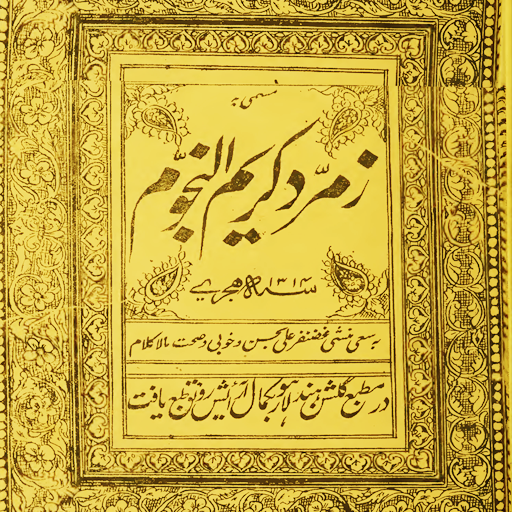 مسمی بہ
زمرد کریم النجوم
سنہ ۱۳۱۴ ہجری
بہ سعی منشی غضنفر علی بحسن و خوبی و صحت مالاکلام
در مطبع گلشن ہند لاہور بکمال آرائش رونق طبع یافت